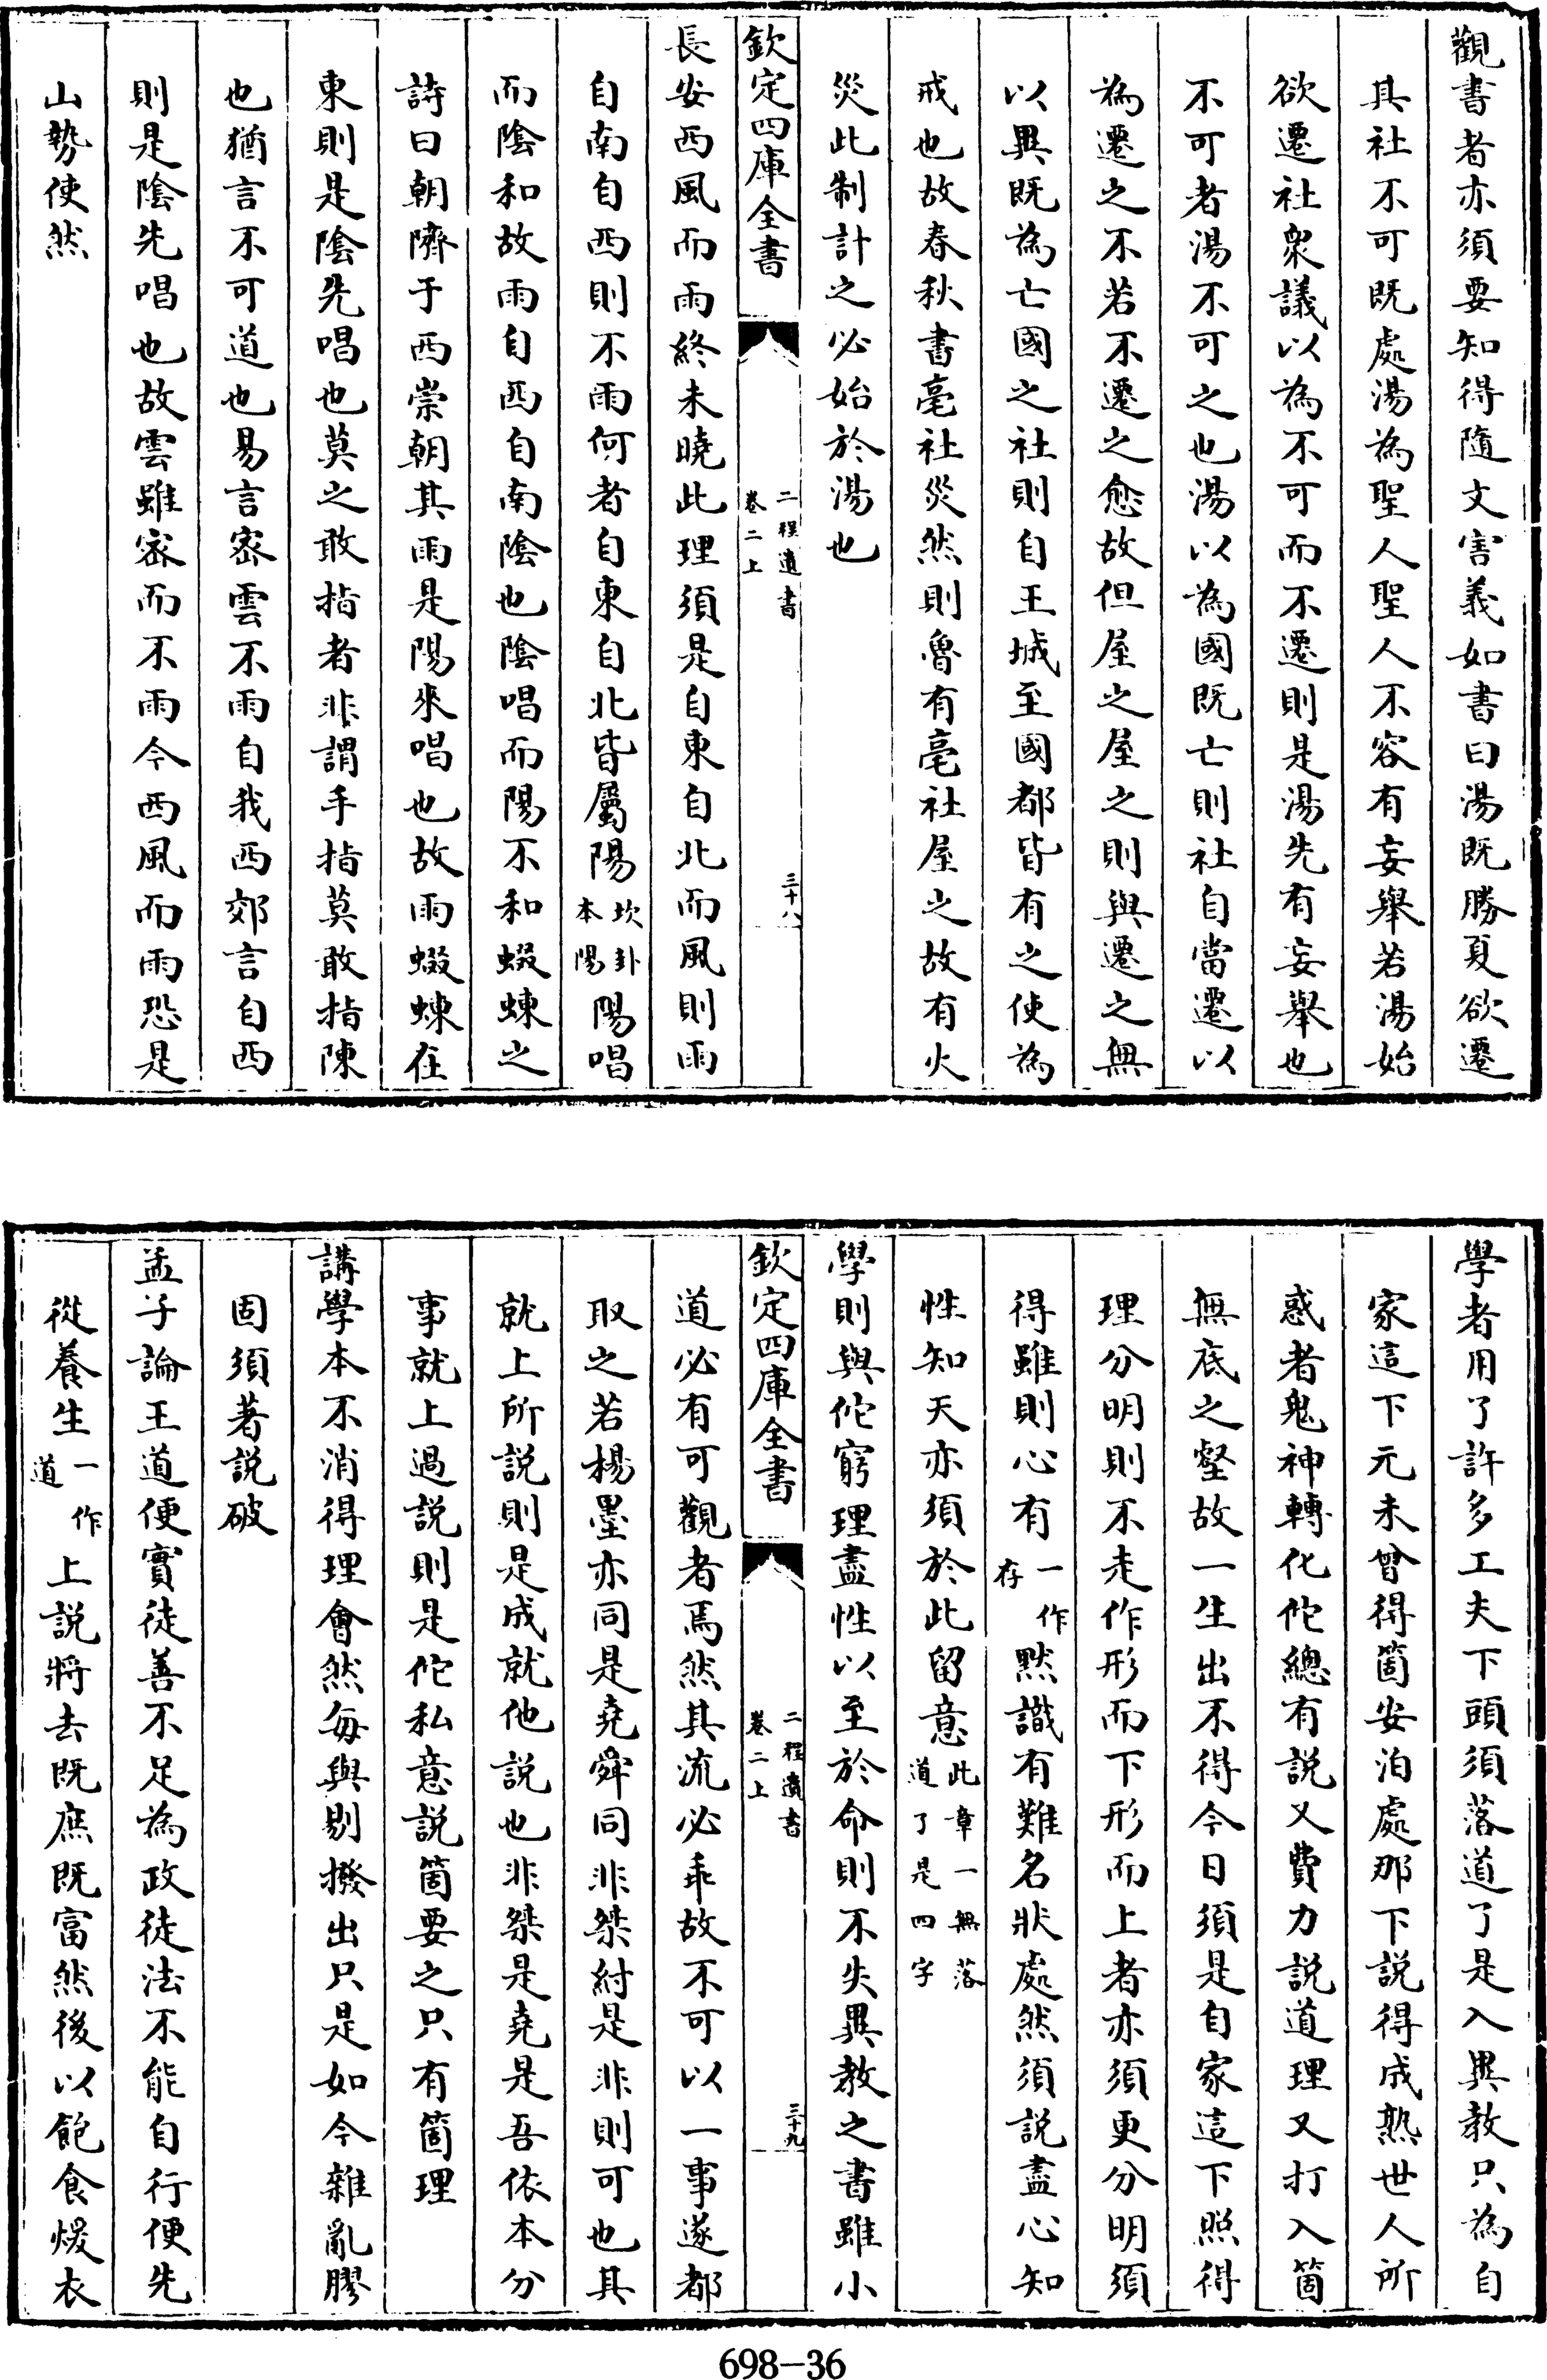 觀書者亦須要知得隨文害義如書曰湯既勝夏欲遷
其社不可既處湯為聖人聖人不容有妄舉若湯始
欲遷社衆議以為不可而不遷則是湯先有妄舉也
不可者湯不可之也湯以為國既亡則社自當遷以
為遷之不若不遷之愈故但屋之屋之則與遷之無
以異既為亡國之社則自王城至國都皆有之使為
戒也故春秋書亳社災然則魯有亳社屋之故有火
災此制計之必始於湯也
欽定四庫全書
二程遺書
卷二上
三十八
長安西風而雨終未曉此理須是自東自北而風則雨
自南自西則不雨何者自東自北皆屬陽坎卦本陽陽唱
而陰和故雨自西自南陰也陰唱而陽不和蝃蝀之
詩曰朝隮于西崇朝其雨是陽來唱也故雨蝃蝀在
東則是陰先唱也莫之敢指者非謂手指莫敢指陳
也猶言不可道也易言密雲不雨自我西郊言自西
則是陰先唱也故雲雖密而不雨今西風而雨恐是
山勢使然
學者用了許多工夫下頭須落道了是入異教只為自
家這下元未曾得箇安泊處那下説得成熟世人所
惑者鬼神轉化佗總有説又費力説道理又打入箇
無底之壑故一生出不得今日須是自家這下照得
理分明則不走作形而下形而上者亦須更分明須
得雖則心有一作存默識有難名狀處然須説盡心知
性知天亦須於此留意此章一無落道了是四字
學則與佗窮理盡性以至於命則不失異教之書雖小
欽定四庫全書
二程遺書
卷二上
三十九
道必有可觀者焉然其流必乖故不可以一事遂都
取之若楊墨亦同是堯舜同非桀紂是非則可也其
就上所説則是成就他説也非桀是堯是吾依本分
事就上過説則是佗私意説箇要之只有箇理
講學本不消得理會然每與剔撥出只是如今雜亂膠
固須著説破
孟子論王道便實徒善不足為政徒法不能自行便先
從養生一作道上説將去既庶既富然後以飽食煖衣
698-36